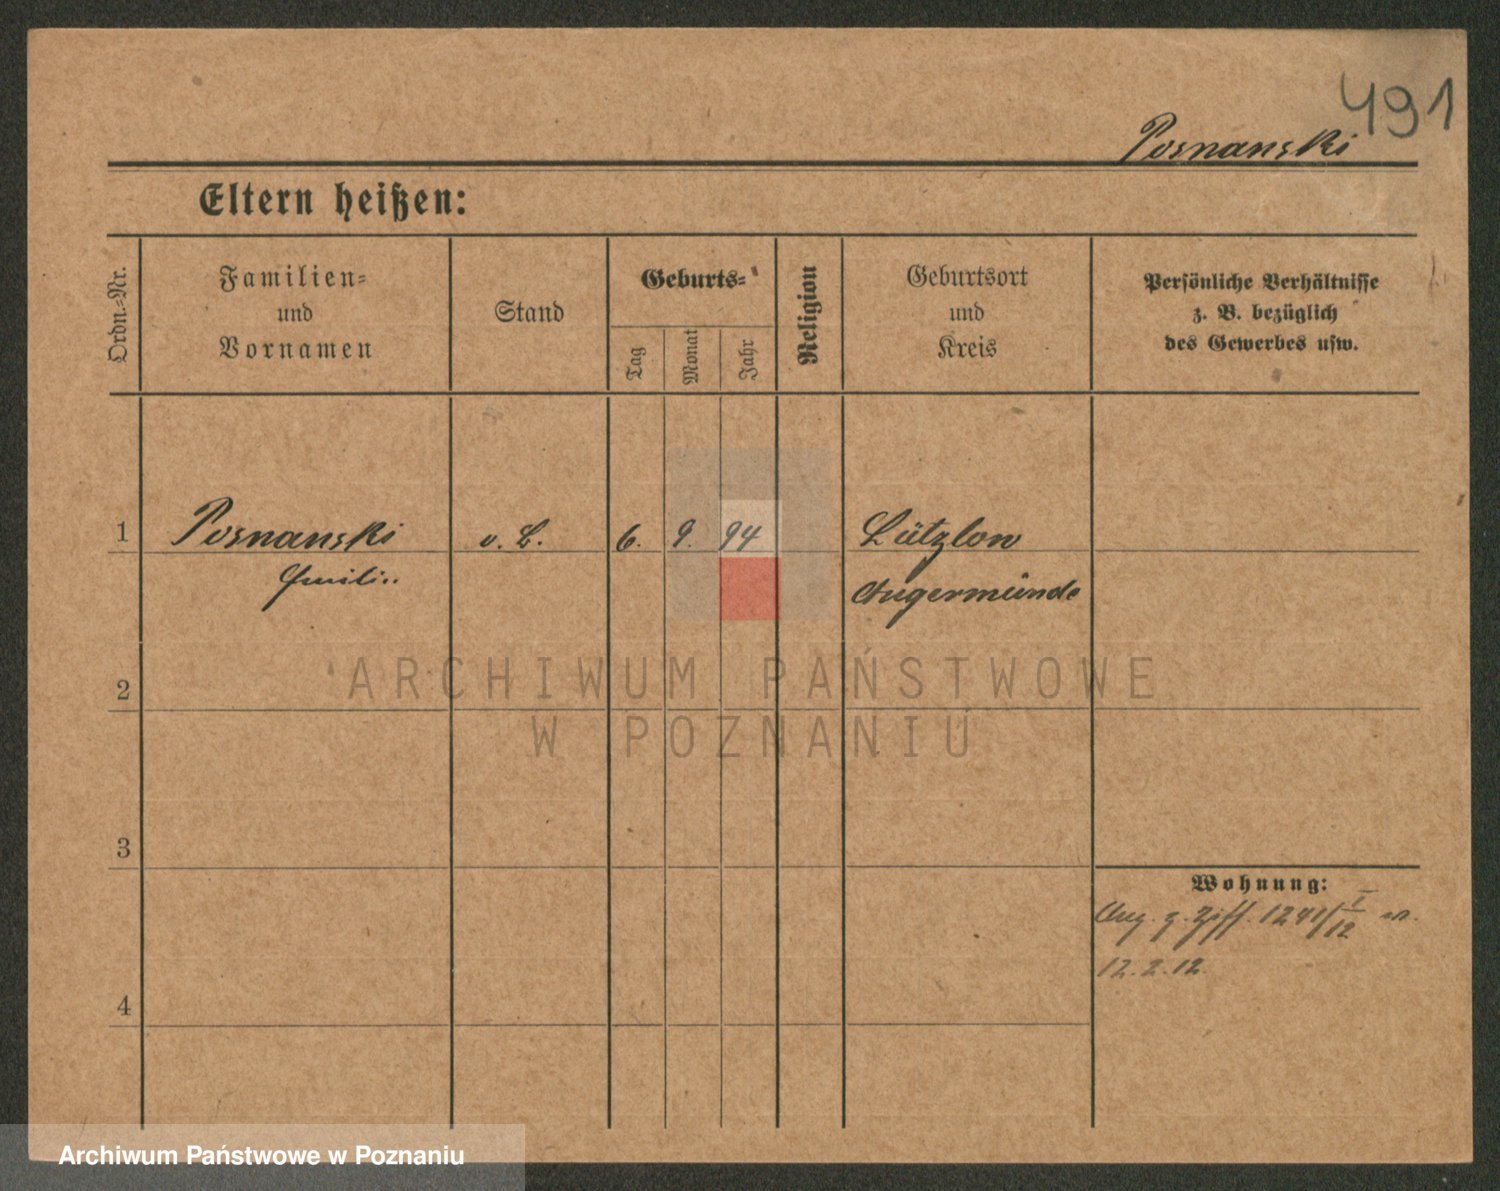 491
Posnanski
Eltern heißen:
Ordn.-Nr.
Familien-
und
Vornamen
Stand
Geburts-
Tag
Monat
Jahr
Religion
Geburtsort
und
Kreis
Persönliche Verhältnisse
z. B. bezüglich
des Gewerbes usw.
1
Posnanski
v. L.
6.
9.
94
Lützlow
Angermünde
2
3
4
Wohnung:
z. Ziff. 1241/
12
12. 2. 12
ARCHIWUM PAŃSTWOWE
W POZNANIU
Archiwum Państwowe w Poznaniu